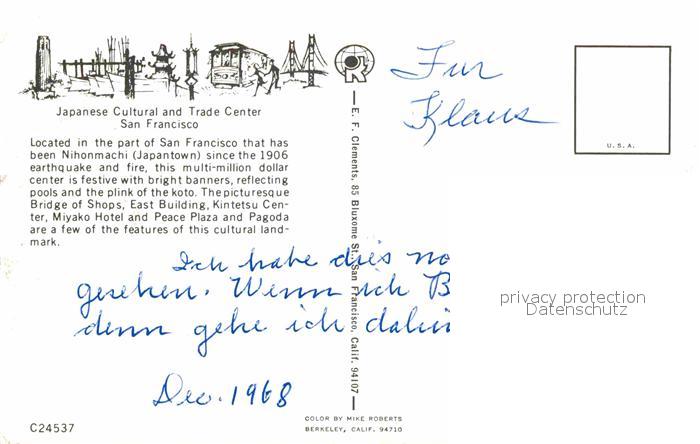 Japanese Cultural and Trade Center
San Francisco
Located in the part of San Francisco that has
been Nihonmachi (Japantown) since the 1906
earthquake and fire, this multi-million dollar
center is festive with bright banners, reflecting
pools and the plink of the koto. The picturesque
Bridge of Shops, East Building, Kintetsu Cen-
ter, Miyako Hotel and Peace Plaza and Pagoda
are a few of the features of this cultural land-
mark.
E. F. Clements, 85 Bluxome St., San Francisco, Calif. 94107
Für
Klaus
U.S.A.
Ich habe dies no
gesehen. Wenn ich B
denn gehe ich dahin
Dec. 1968
privacy protection
Datenschutz
C24537
COLOR BY MIKE ROBERTS
BERKELEY, CALIF. 94710